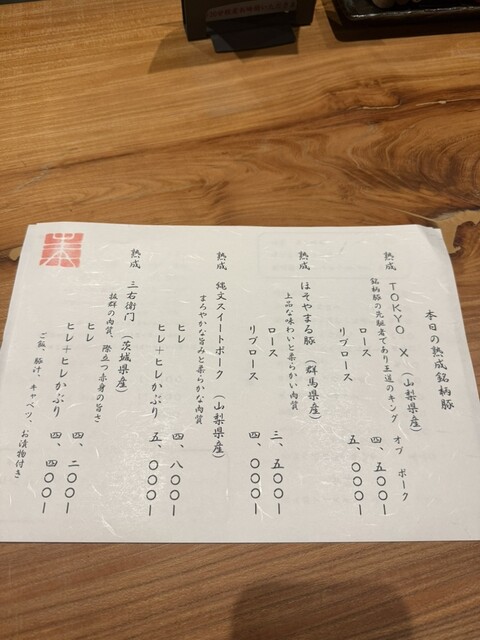 本日の熟成銘柄豚
熟成 TOKYO X (山梨県産)
銘柄豚の先駆者であり王道のキング オブ ポーク
ロース 四、五〇〇ー
リブロース 五、〇〇〇ー
熟成 ほそやまる豚 (群馬県産)
上品な味わいと柔らかい肉質
ロース 三、五〇〇ー
リブロース 四、〇〇〇ー
熟成 縄文スイートポーク (山梨県産)
まろやかな旨みと柔らかな肉質
ヒレ 四、八〇〇ー
ヒレ+ヒレかぶり 五、〇〇〇ー
熟成 三右衛門 (茨城県産)
抜群の肉質、際立つ赤身の旨さ
ヒレ 四、二〇〇ー
ヒレ+ヒレかぶり 四、四〇〇ー
ご飯、豚汁、キャベツ、お漬物付き